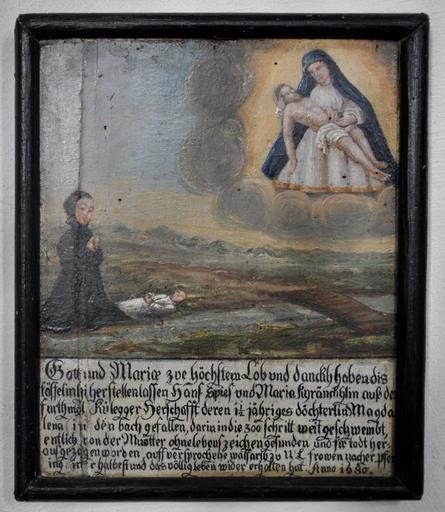 Gott und Mariæ zue höchstem Lob vnd danckh haben dis
tässelin hi herstellen lassen Hanß Spieß vnd Maria Kyränckhlin auß de
furthmgl Rüegger Herschafft deren 1¼ jähriges döchterlin Magda
lena in den bach gefallen, darin in die 200 schritt weit geschwembt,
entlich von der Muotter ohne lebens zeichen gefunden und für todt her-
auß gezogen worden, auff versprochene wallfarth zu U. L. frowen nacher
und das völlig leben wider erhalten hat. Anno 1686.